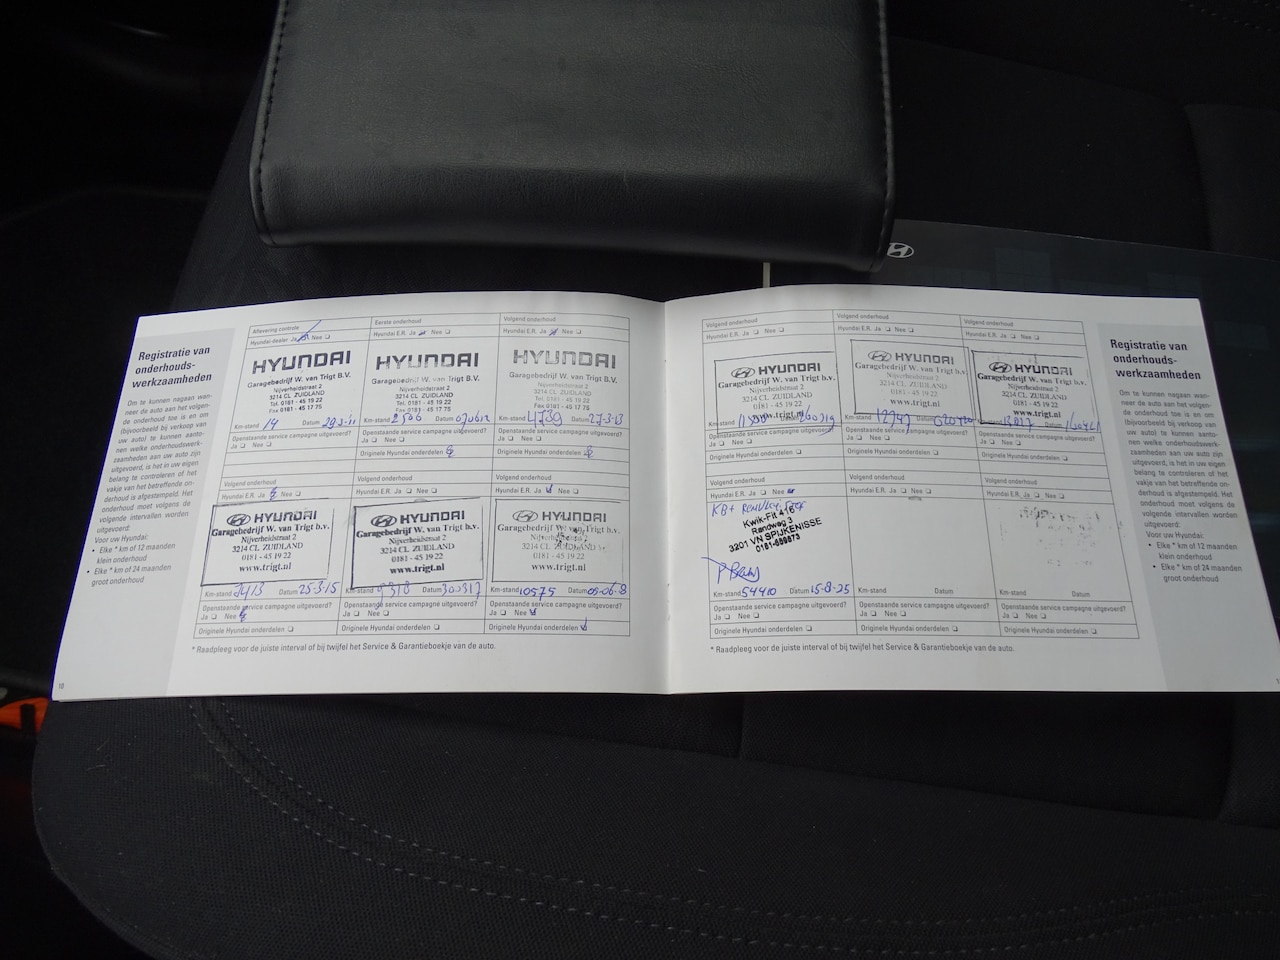 Registratie van
onderhouds-
werkzaamheden
Om te kunnen nagaan wan-
neer de auto aan het volgen-
de onderhoud toe is en om
(bijvoorbeeld bij verkoop van
uw auto) te kunnen aanto-
nen welke onderhoudswerk-
zaamheden aan uw auto zijn
uitgevoerd, is het in uw eigen
belang te controleren of het
vakje van het betreffende on-
derhoud is afgestempeld. Het
onderhoud moet volgens de
volgende intervallen worden
uitgevoerd:
Voor uw Hyundai:
• Elke * km of 12 maanden
klein onderhoud
• Elke * km of 24 maanden
groot onderhoud
10
Aflevering controle
Hyundai-dealer Ja Nee
HYUNDAI
Garagebedrijf W. van Trigt B.V.
Nijverheidstraat 2
3214 CL ZUIDLAND
Tel. 0181 - 45 19 22
Fax 0181 - 45 17 75
Km-stand 14 Datum 29-3-11
Openstaande service campagne uitgevoerd?
Ja Nee
Eerste onderhoud
Hyundai E.R. Ja Nee
HYUNDAI
Garagebedrijf W. van Trigt B.V.
Nijverheidstraat 2
3214 CL ZUIDLAND
Tel. 0181 - 45 19 22
Fax 0181 - 45 17 75
Km-stand 2566 Datum
Openstaande service campagne uitgevoerd?
Ja Nee
Originele Hyundai onderdelen
Volgend onderhoud
Hyundai E.R. Ja Nee
HYUNDAI
Garagebedrijf W. van Trigt B.V.
Nijverheidstraat 2
3214 CL ZUIDLAND
Tel. 0181 - 45 19 22
Fax 0181 - 45 17 75
Km-stand 4739 Datum 27-3-13
Openstaande service campagne uitgevoerd?
Ja Nee
Originele Hyundai onderdelen
Volgend onderhoud
Hyundai E.R. Ja Nee
HYUNDAI
Garagebedrijf W. van Trigt b.v.
Nijverheidstraat 2
3214 CL ZUIDLAND
0181 - 45 19 22
www.trigt.nl
Km-stand 7413 Datum 25-3-15
Openstaande service campagne uitgevoerd?
Ja Nee
Originele Hyundai onderdelen
Volgend onderhoud
Hyundai E.R. Ja Nee
HYUNDAI
Garagebedrijf W. van Trigt b.v.
Nijverheidstraat 2
3214 CL ZUIDLAND
0181 - 45 19 22
www.trigt.nl
Km-stand 9318 Datum 300317
Openstaande service campagne uitgevoerd?
Ja Nee
Originele Hyundai onderdelen
Volgend onderhoud
Hyundai E.R. Ja Nee
HYUNDAI
Garagebedrijf W. van Trigt b.v.
Nijverheidstraat 2
3214 CL ZUIDLAND
0181 - 45 19 22
www.trigt.nl
Km-stand 10575 Datum
Openstaande service campagne uitgevoerd?
Ja Nee
Originele Hyundai onderdelen
* Raadpleeg voor de juiste interval of bij twijfel het Service & Garantieboekje van de auto.
Volgend onderhoud
Hyundai E.R. Ja Nee
HYUNDAI
Garagebedrijf W. van Trigt b.v.
Nijverheidstraat 2
3214 CL ZUIDLAND
0181 - 45 19 22
www.trigt.nl
Openstaande service campagne uitgevoerd?
Ja Nee
Originele Hyundai onderdelen
Volgend onderhoud
Hyundai E.R. Ja Nee
HYUNDAI
Garagebedrijf W. van Trigt b.v.
Nijverheidstraat 2
3214 CL ZUIDLAND
0181 - 45 19 22
www.trigt.nl
Km-stand Datum
Openstaande service campagne uitgevoerd?
Ja Nee
Originele Hyundai onderdelen
Volgend onderhoud
Hyundai E.R. Ja Nee
HYUNDAI
Garagebedrijf W. van Trigt b.v.
Nijverheidstraat 2
3214 CL ZUIDLAND
0181 - 45 19 22
www.trigt.nl
Km-stand 13027 Datum
Openstaande service campagne uitgevoerd?
Ja Nee
Originele Hyundai onderdelen
Volgend onderhoud
Hyundai E.R. Ja Nee
KB +
Kwik-Fit 416
Randweg 3
3201 VN SPIJKENISSE
Km-stand 54410 Datum 15-8-25
Openstaande service campagne uitgevoerd?
Ja Nee
Originele Hyundai onderdelen
Volgend onderhoud
Hyundai E.R. Ja Nee
Km-stand Datum
Openstaande service campagne uitgevoerd?
Ja Nee
Originele Hyundai onderdelen
Volgend onderhoud
Hyundai E.R. Ja Nee
Km-stand Datum
Openstaande service campagne uitgevoerd?
Ja Nee
Originele Hyundai onderdelen
* Raadpleeg voor de juiste interval of bij twijfel het Service & Garantieboekje van de auto.
Registratie van
onderhouds-
werkzaamheden
Om te kunnen nagaan wan-
neer de auto aan het volgen-
de onderhoud toe is en om
(bijvoorbeeld bij verkoop van
uw auto) te kunnen aanto-
nen welke onderhoudswerk-
zaamheden aan uw auto zijn
uitgevoerd, is het in uw eigen
belang te controleren of het
vakje van het betreffende on-
derhoud is afgestempeld. Het
onderhoud moet volgens de
volgende intervallen worden
uitgevoerd:
Voor uw Hyundai:
• Elke * km of 12 maanden
klein onderhoud
• Elke * km of 24 maanden
groot onderhoud